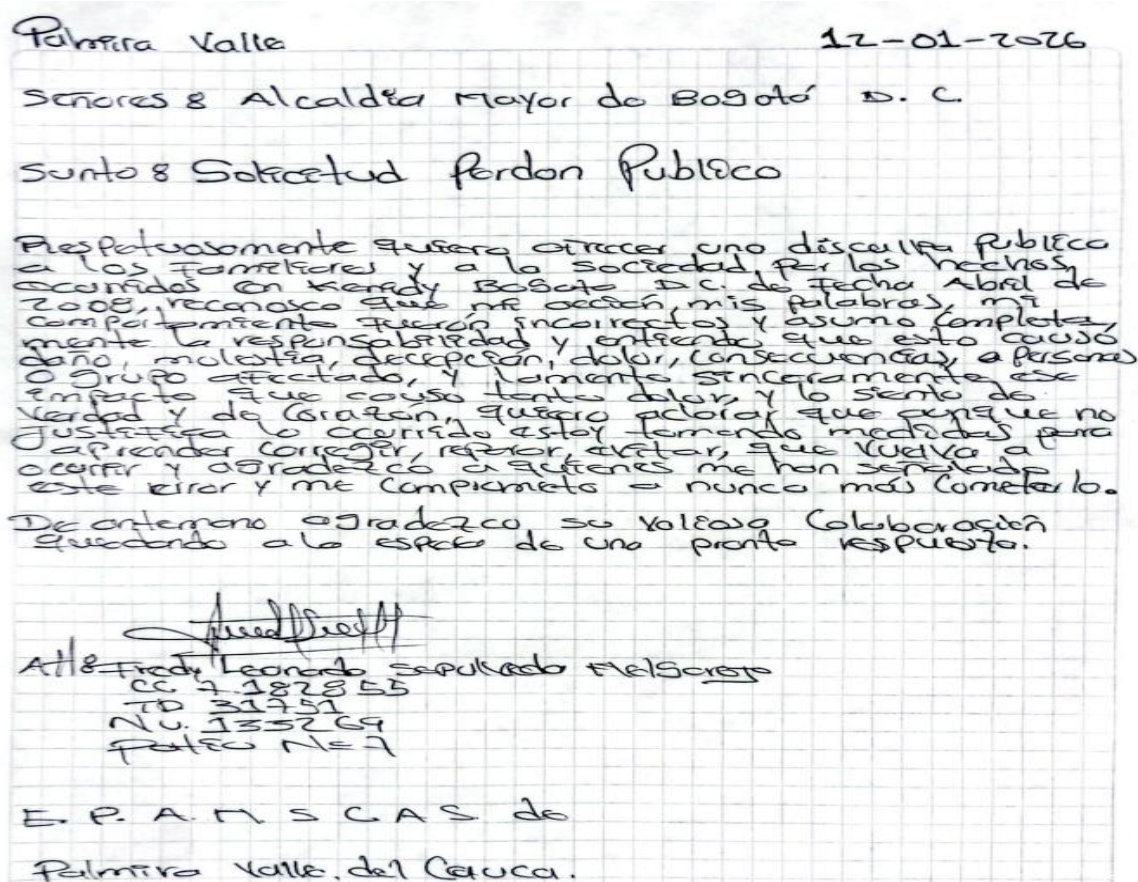 Palmira Valle 12-01-2026
Señores: Alcaldía Mayor de Bogotá D. C.
Sunto: Solicitud Perdon Publico
Respetuosamente quiero ofrecer una disculpa publica
a los Familiares y a la sociedad, por los hechos
ocurridos en Kenedy Bogota D.C. de Fecha Abril de
2008, reconosco que mi acción, mis palabras, mi
comportamiento fueron incorrectos y asumo completa,
mente la responsabilidad y entiendo que esto causó
daño, molestia, decepción, dolor, consecuencias, a Personas
o grupo afectado, y lamento sinceramente ese
impacto que causo tanto dolor, y lo siento de
verdad y de Corazón, quiero aclarar que aunque no
Justifica lo ocurrido estoy tomando medidas para
aprender corregir, reparar, evitar, que vuelva a
ocurrir y agradezco a quienes me han señalado
este error y me comprometo a nunca más Cometerlo.
De antemano agradezco su valiosa Colaboración
quedando a la espera de una pronta respuesta.
Att: Fredy Leonardo Sepulveda
CC 7.182855
TD 31751
NU. 135269
Patio N=7
E. P. A. M S C A S de
Palmira Valle. del Cauca.